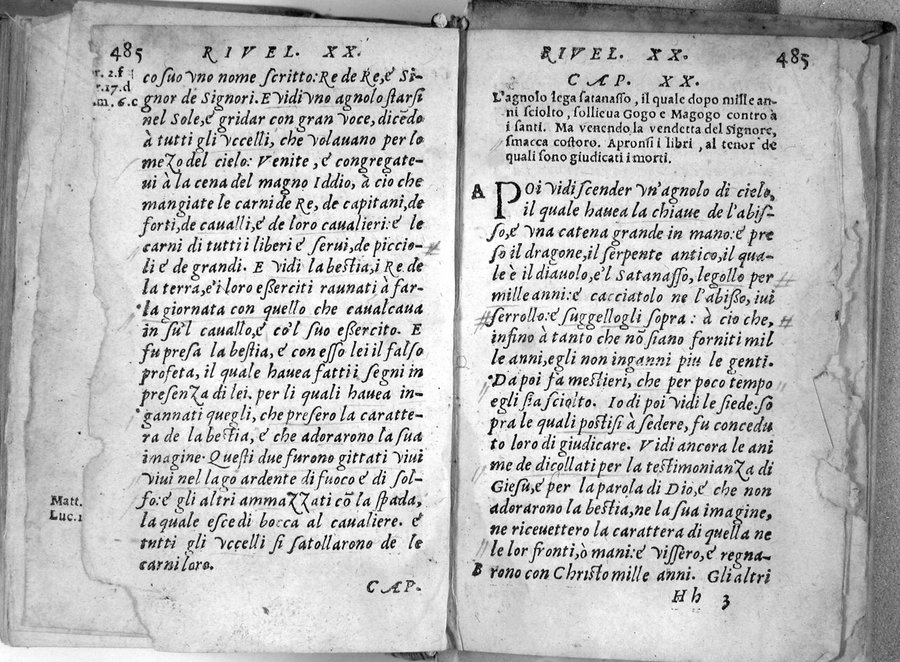 485 RIVEL. XX.
r. 2. f
r. 17. d
m. 6. c
co suo vno nome scritto: Re de Re, e Si-
gnor de Signori. E vidi vno agnolo starsi
nel Sole, e gridar con gran voce, dicẽdo
à tutti gli vccelli, che volauano per lo
mezo del cielo: Venite, e congregate-
ui à la cena del magno Iddio, à cio che
mangiate le carni de Re, de capitani, de
forti, de caualli, e de loro caualieri: e le
carni di tutti i liberi e serui, de piccio-
li e de grandi. E vidi la bestia, i Re de
la terra, e i loro esserciti raunati à far-
la giornata con quello che caualcaua
in su'l cauallo, e co'l suo essercito. E
fu presa la bestia, e con esso lei il falso
profeta, il quale hauea fatti i segni in
presenza di lei, per li quali hauea in-
gannati quegli, che presero la caratte-
ra de la bestia, e che adorarono la sua
imagine. Questi due furono gittati viui
viui nel lago ardente di fuoco e di sol-
fo: e gli altri ammazzati cõ la spada,
la quale esce di bocca al caualiere. e
tutti gli vccelli si satollarono de le
carni loro.
Matt.
Luc. 1
CAP.
RIVEL. XX. 485
CAP. XX.
L'agnolo lega satanasso, il quale dopo mille an-
ni sciolto, sollieua Gogo e Magogo contro à
i santi. Ma venendo la vendetta del Signore,
smacca costoro. Apronsi i libri, al tenor de
quali sono giudicati i morti.
A Poi vidi scender vn'agnolo di cielo,
il quale hauea la chiaue de l'abis-
so, e vna catena grande in mano: e pre
so il dragone, il serpente antico, il qua-
le è il diauolo, e'l Satanasso, legollo per
mille anni: e cacciatolo ne l'abisso, iui
serrollo: e suggellogli sopra: à cio che,
infino à tanto che nõ siano forniti mil
le anni, egli non inganni piu le genti.
Da poi fa mestieri, che per poco tempo
egli sia sciolto. Io di poi vidi le siede. so
pra le quali postisi à sedere, fu concedu
to loro di giudicare. Vidi ancora le ani
me de dicollati per la testimonianza di
Giesu, e per la parola di Dio, e che non
adorarono la bestia, ne la sua imagine,
ne riceuettero la carattera di quella ne
le lor fronti, ò mani: e vissero, e regna-
B rono con Christo mille anni. Gli altri
Hh 3